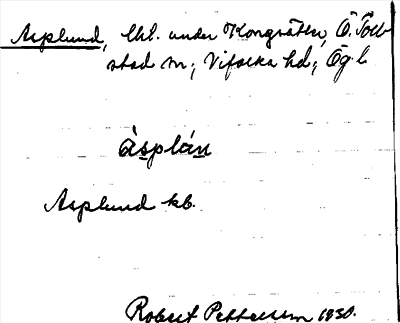 Asplund, lhl. under Korgsäter, Ö. Tollstad sn; Vifolka hd; Ög. l.
àsplán
Asplund kb.
Robert Pettersson 1930.